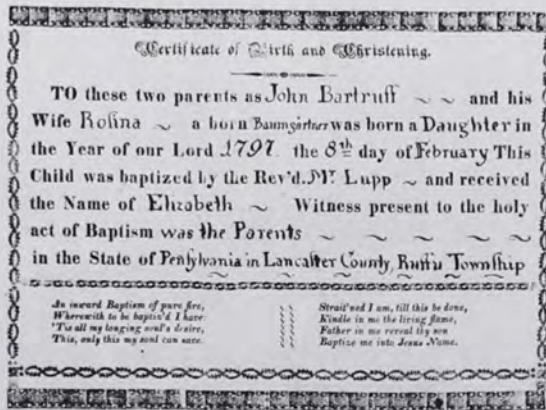 Certificate of Birth and Christening.
TO these two parents as John Bartruff ~ ~ and his
Wife Rosina ~ a born Baumgärtner was born a Daughter in
the Year of our Lord 1797 the 8th day of February This
Child was baptized by the Rev'd. Mr. Lupp ~ and received
the Name of Elizabeth ~ Witness present to the holy
act of Baptism was the Parents ~ ~ ~ ~ ~
in the State of Pensylvania in Lancaster County, Township
An inward Baptism of pure fire,
Wherewith to be baptiz'd I have:
'Tis all my longing soul's desire,
This, only this my soul can save.
Strait'ned I am, till this be done,
Kindle in me the living flame,
Father in me reveal thy son
Baptize me into Jesus Name.